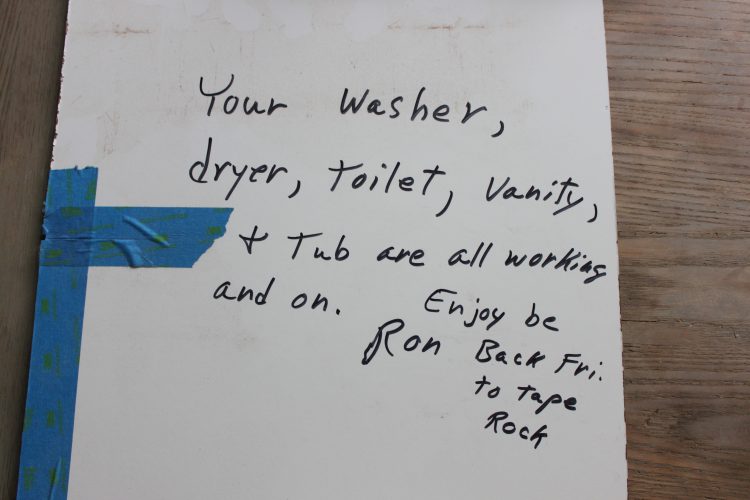 Your Washer,
dryer, Toilet, Vanity,
+ Tub are all working
and on. Enjoy be
Ron Back Fri.
to tape
Rock